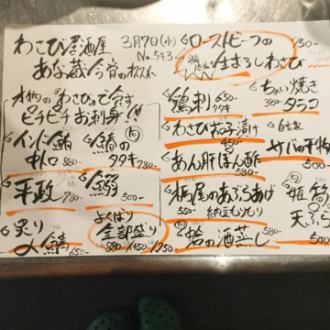 わさび居酒屋
あな蔵 今宵の
3月7日(水)
No.543
本物の"わさび"で食す
ピチピチお刺身!!!
インド鮪
中トロ 880-
鯖の
タタキ 780-
平政 780-
鰯 500-
炙り
〆鯖 650-
よくばり
全部盛り
880-/1150-/1750
ローストビーフの
生おろしわさび
650-
鶏刺 650-
タタキ 700-
ちょい焼き
タラコ
わさび茄子漬け
自家製
サバの干物
あん肝ぽん酢 550-
栃尾のあぶらあげ
550- 納豆もりもり 500-
姫筍
天ぷら
蛤の酒蒸し 500-